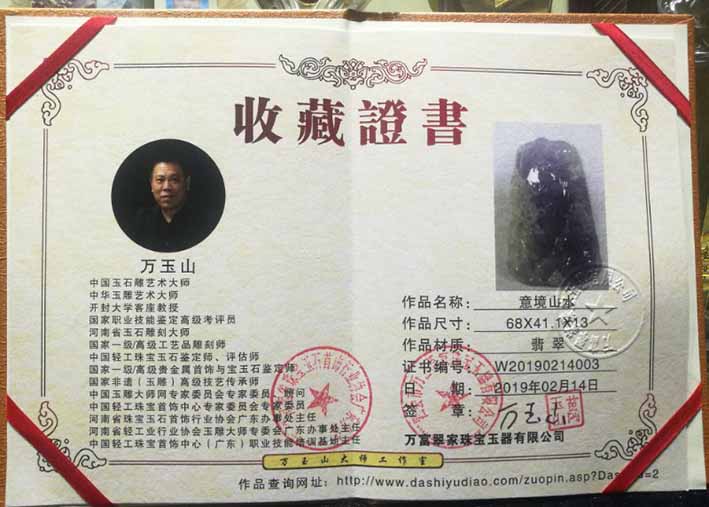 收藏證書
万玉山
中国玉石雕艺术大师
中华玉雕艺术大师
开封大学客座教授
国家职业技能鉴定高级考评员
河南省玉石雕刻大师
国家一级/高级工艺品雕刻师
中国轻工珠宝玉石鉴定师、评估师
国家一级/高级贵金属首饰与宝玉石鉴定师
国家非遗（玉雕）高级技艺传承师
中国玉雕大师网专家委员会专家委员、顾问
中国轻工珠宝首饰中心专家委员会专家委员
河南省珠宝玉石首饰行业协会广东办事处主任
河南省轻工业行业协会玉雕大师专委会广东办事处主任
中国轻工珠宝首饰中心（广东）职业技能培训基地主任
作品名称： 意境山水
作品尺寸： 68X41.1X13
作品材质： 翡翠
证书编号： W20190214003
日期： 2019年02月14日
签章： 万玉山
万富翠家珠宝玉器有限公司
万玉山大师工作室
作品查询网址：http://www.dashiyudiao.com/zuopin.asp?Das
=2